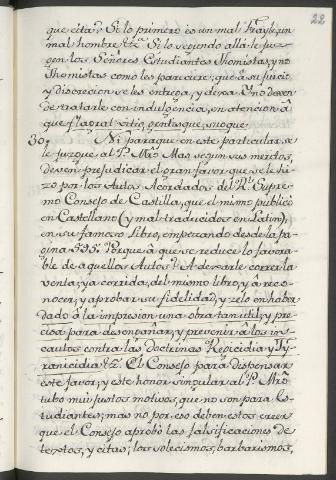 22
que cita? Si lo primero es un mal Frayle, un
mal hombre &c. Si lo segundo allá le juz-
gen los Señores Estudiantes Thomistas, y no
Thomistas como les pareciere, que à su juicio,
y discrecion se les entrega, y dexa. Y no deven
de tratarle con indulgencia, en atencion à
que
30. Ni para que en este particular se
le juzgue al P. Mro Mas segun sus meritos,
deven prejudicar el gran favor que se le hi-
zo por los Autos Acordados del R. Supre-
mo Consejo de Castilla, que el mismo publicò
en Castellano (y mal traducidos en Latin),
en su famoso Libro, empezando desde la pa-
gina 595. Porque à que se reduce lo favora-
ble de aquellos Autos? A dexarle correr la
venta, ya corrida, del mismo libro, y à reco-
nocer, y aprobar su fidelidad, y zelo en haber
dado à la impresion una obra tan util, y pre-
cisa para desengañar, y prevenir à los in-
cautos contra las doctrinas Regicidia, y Ty-
ranicidia &c. El Consejo para dispensar
este favor, y este honor singular al P. Mro
tubo muy justos motivos, que no son para Es-
tudiantes; mas no por eso deben estos creer
que el Consejo aprobò las falsificaciones de
textos, y citas; los solecismos, barbarismos,